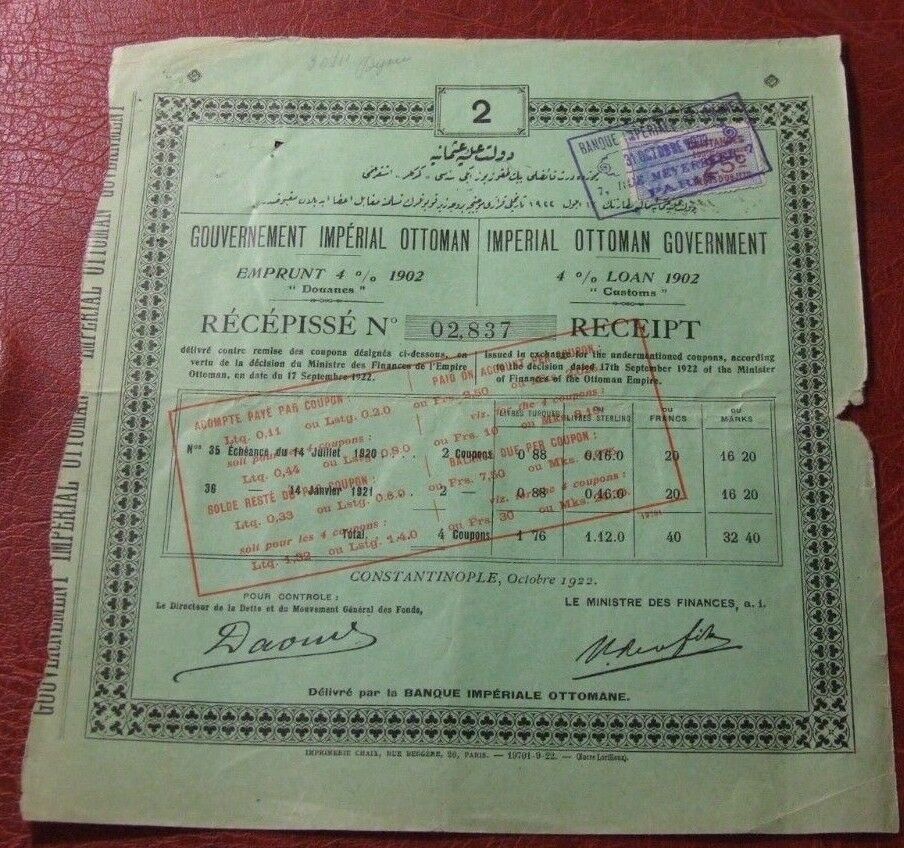 2
دولت علیه عثمانیه
GOUVERNEMENT IMPÉRIAL OTTOMAN
EMPRUNT 4 % 1902
" Douanes "
IMPERIAL OTTOMAN GOVERNMENT
4 % LOAN 1902
" Customs "
RÉCÉPISSÉ No 02,837 RECEIPT
délivré contre remise des coupons désignés ci-dessous, en
vertu de la décision du Ministre des Finances de l'Empire
Ottoman, en date du 17 Septembre 1922.
Issued in exchange for the undermentioned coupons, according
to the decision dated 17th September 1922 of the Minister
of Finances of the Ottoman Empire.
LIVRES TURQUES
LIVRES STERLING
ou FRANCS
ou MARKS
Nos 35 Échéance du 14 Juillet 1920 .... 2 Coupons 0 88 0.16.0 20 16 20
36 — 14 Janvier 1921 .... 2 — 0 88 0.16.0 20 16 20
Total. 4 Coupons 1 76 1.12.0 40 32 40
ACOMPTE PAYÉ PAR COUPON :
Ltq. 0,11 ou Lstg. 0.2.0 ou Frs. 2,50
soit pour les 4 coupons :
Ltq. 0,44 ou Lstg. 0.8.0 ou Frs. 10
SOLDE RESTÉ DÛ PAR COUPON :
Ltq. 0,33 ou Lstg. 0.6.0 ou Frs. 7,50
soit pour les 4 coupons :
Ltq. 1,32 ou Lstg. 1.4.0 ou Frs. 30
PAID ON ACCOUNT PER COUPON :
viz. for the 4 coupons :
BALANCE DUE PER COUPON :
viz. for the 4 coupons :
19701
CONSTANTINOPLE, Octobre 1922.
POUR CONTROLE :
Le Directeur de la Dette et du Mouvement Général des Fonds,
LE MINISTRE DES FINANCES, a. i.
Délivré par la BANQUE IMPÉRIALE OTTOMANE.
IMPRIMERIE CHAIX, RUE BERGÈRE, 20, PARIS. — 19701-9-22. — (Encre Lorilleux).
GOUVERNEMENT IMPÉRIAL OTTOMAN
IMPERIAL OTTOMAN GOVERNMENT
BANQUE IMPÉRIALE
31 OCTOBRE
7, RUE MEYERBEER, 7
PARIS